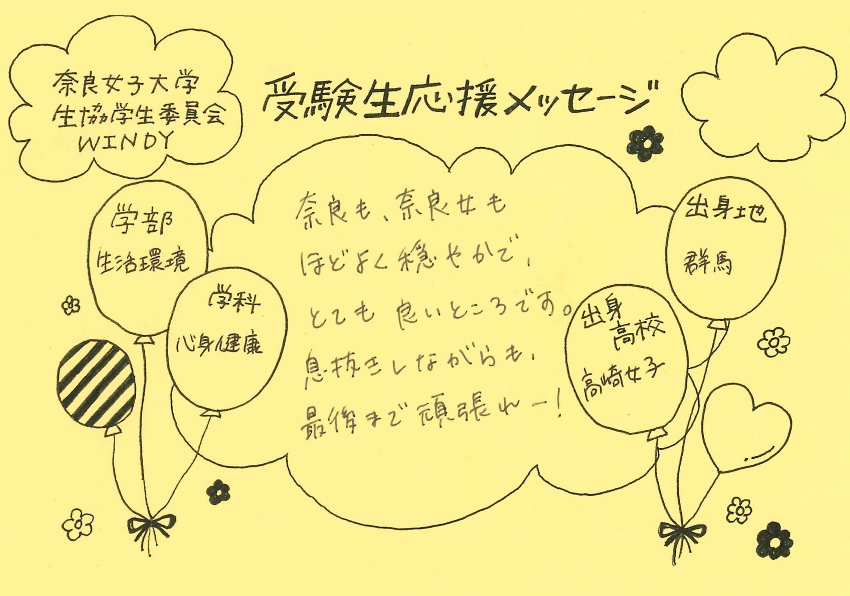 奈良女子大学
生協学生委員会
WINDY
受験生応援メッセージ
学部
生活環境
学科
心身健康
奈良も、奈良女も
ほどよく穏やかで、
とても良いところです。
息抜きしながらも、
最後まで頑張れー!
出身地
群馬
出身
高校
高崎女子